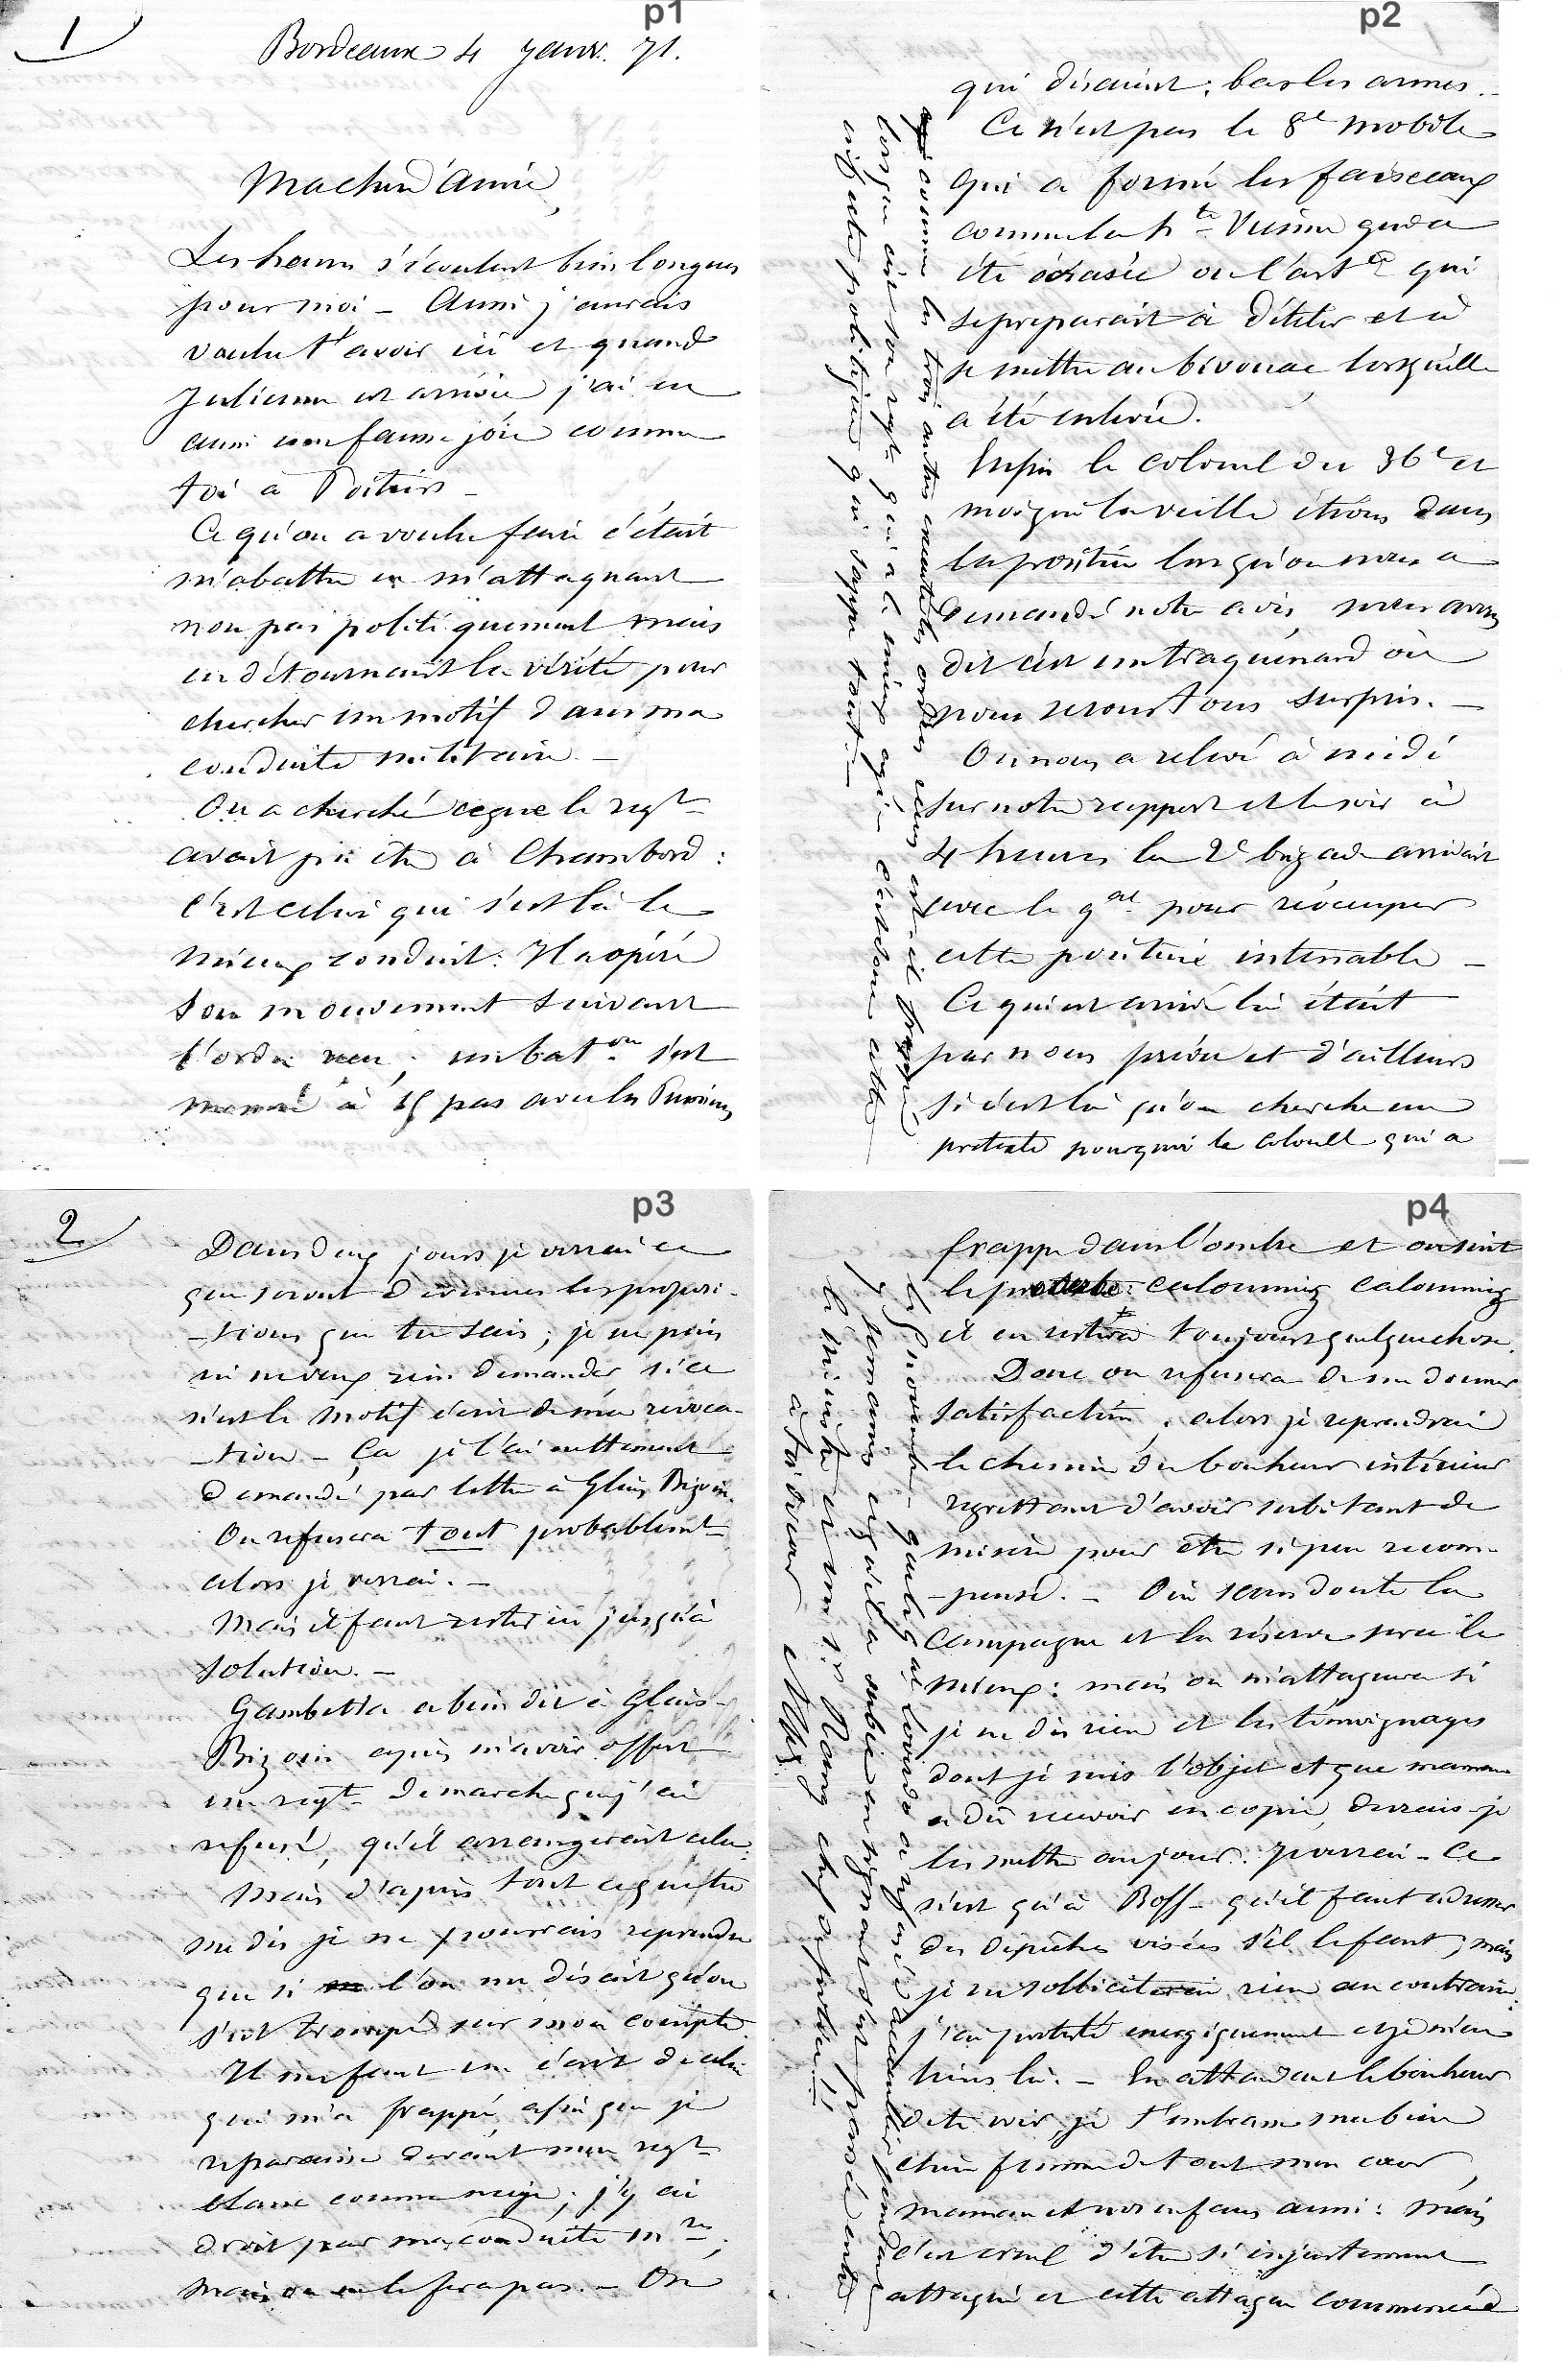 1
p1
Bordeaux 4 Janv. 71.
Ma chère d'amie,
Les heures s'écoulent bien longues
pour moi _ Aussi j'aurais
voulu t'avoir ici et quand
Julienne est arrivée j'ai eu
aussi une fausse joie comme
toi à Poitiers _
Ce qu'on a voulu faire c'était
m'abattre en m'attaquant
non pas politiquement mais
en détournant la vérité pour
chercher un motif dans ma
conduite militaire _
On a cherché ce que le regt
avait pu être à Chambord :
c'est celui qui s'est là le
mieux conduit : Il a opéré
son mouvement suivant
l'ordre reçu ; un baton s'est
à 15 pas avec les Prussiens
p2
qui disaient : bas les armes _
Ce n'est pas le 8e mobile
qui a formé les faisceaux
comme la hte Vienne qui a
été écrasée ou l'artie qui
se préparait à dételer et à
se mettre au bivouac lorsqu'elle
a été enlevée.
Enfin le colonel du 36e et
moi qui la veille étions dans
la position lorsqu'on nous a
demandé notre avis, nous avons
dit c'est un traquenard où
nous serons tous surpris. _
On nous a relevé à midi
sur notre rapport et le soir à
4 heures la 2e brigade arrivait
avec le gal pour réoccuper
cette position intenable _
Ce qui est arrivé là était
par nous prévu et d'ailleurs
si c'est là qu'on cherche un
prétexte pourquoi le colonel qui a
comme les trois autres exécuté les ordres reçus est-il frappé
lorsque c'est son regt qui a le mieux agi : c'est donc cette
politique qui sappe tout. _
2
p3
Dans deux jours je verrai ce
que seront devenues les proposi-
-tions que tu sais ; je ne puis
ni ne veux rien demander si ce
n'est le motif écrit de ma révoca-
-tion _ Ça je l'ai nettement
demandé par lettre à Glais Bizoin.
On refusera tout probablement
alors je verrai. _
Mais il faut rester ici jusqu'à
solution. _
Gambetta a bien dit à Glais-
Bizoin après m'avoir offert
un regt de marche que j'ai
refusé, qu'il arrangerait cela.
Mais d'après tout ce que tu
me dis je ne pourrais reprendre
que si l'on me disait qu'on
s'est trompé sur mon compte.
Il me faut un écrit de celui
qui m'a frappé, afin que je
reparaisse devant mon regt
blanc comme neige ; j'y ai
droit par ma conduite mre ;
mais on ne le fera pas. _ On
p4
frappe dans l'ombre et on suit
le proverbe : calomniez calomniez
il en restera toujours quelque chose.
Donc on refusera de me donner
satisfaction ; alors je reprendrai
le chemin du bonheur intérieur
regrettant d'avoir subi tant de
misère pour être si peu récom-
-pensé. _ Oui sans doute la
campagne et la réserve serai le
mieux : mais on m'attaquera si
je ne dis rien et les témoignages
dont je suis l'objet et que maman
a dû recevoir en copie, devrais-je
les mettre au jour : Je verrai _ Ce
n'est qu'à Boff _ qu'il faut adresser
des dépêches visées s'il le faut ; mais
je ne solliciterai rien au contraire :
j'ai protesté energiquement et je m'en
tiens là. _ En attendant le bonheur
de te voir, je t'embrasse ma bien
chère femme de tout mon cœur,
maman et nos enfans aussi : mais
c'est cruel d'être si injustement
attaqué et cette attaque commencée
le novembre
ministre
à toi